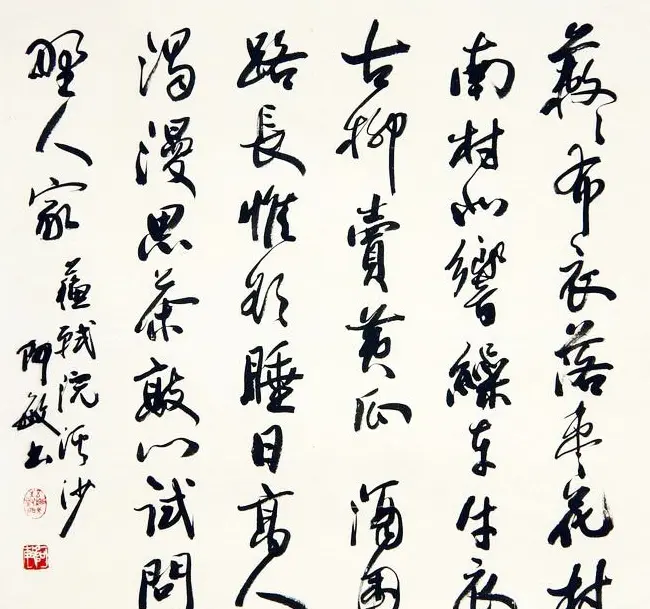 蔌々布衣落棗花村
南村北響繰車牛衣
古柳賣黄瓜 酒困
路長惟欲睡日高人
渴漫思茶敲门試問
野人家
蘇軾浣溪沙
阿敏书